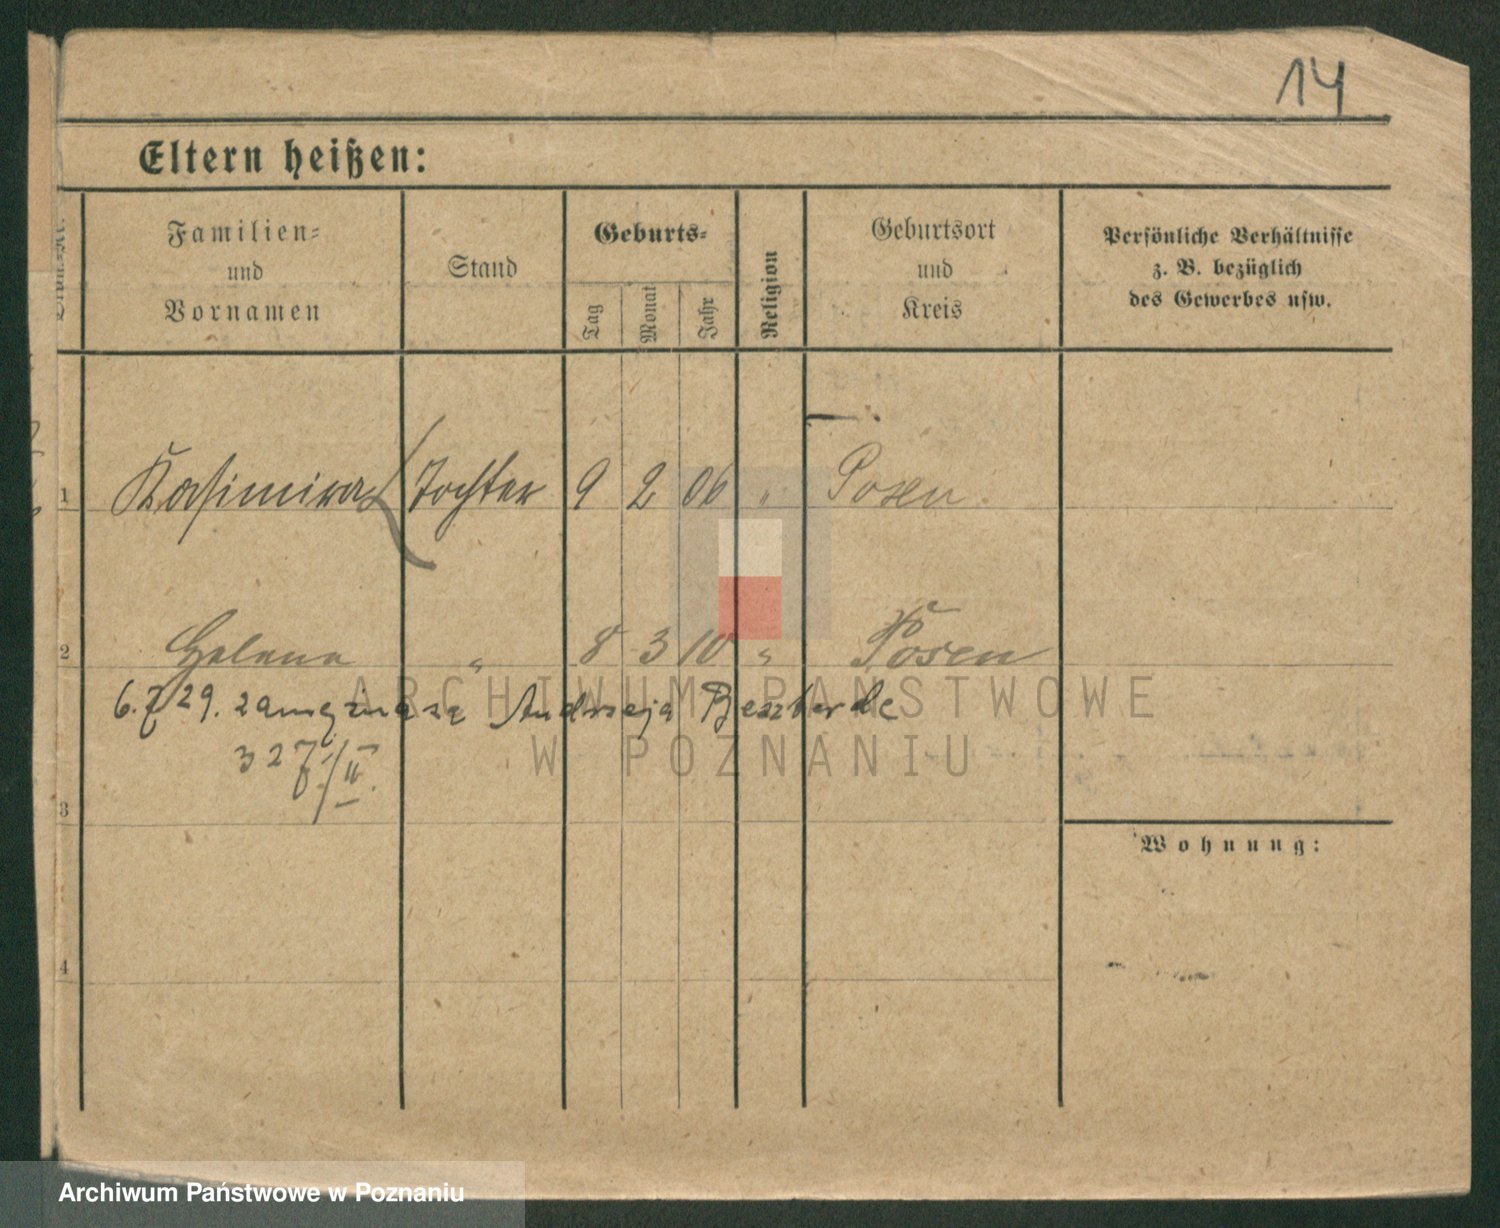 14
Eltern heißen:
Familien-
und
Vornamen
Stand
Geburts-
Tag
Monat
Jahr
Religion
Geburtsort
und
Kreis
Persönliche Verhältnisse
z. B. bezüglich
des Gewerbes usw.
1 Kasimira Tochter 9 2 06 " Posen
2 Helene " 8 3 10 " Posen
6.7 29. zamęzna za Andrzeja
327/II.
3
Wohnung:
4
ARCHIWUM PAŃSTWOWE
W POZNANIU
Archiwum Państwowe w Poznaniu